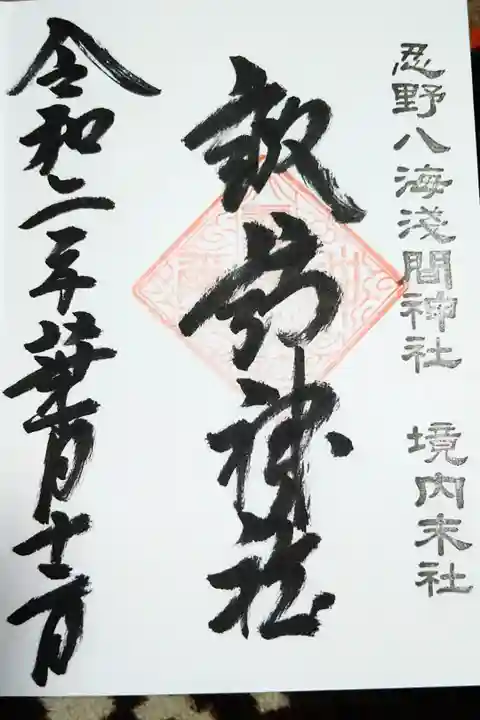 忍野八海浅間神社 境内末社
諏訪神社
令和二年葉月十二日